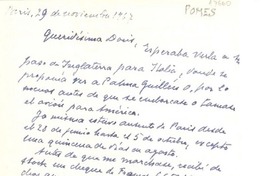 París, 29 de noviembre 1962
POMES
Queridísima Doris,
Esperaba verla a su
paso de Inglaterra para Italia, donde se
proponía ver a Palma Guillén o, por lo
menos antes de que se embarcase o tomara
el avión para América.
Yo misma estuve ausente de París desde
el 28 de junio hasta el 5 de octubre, excepto
una quincena de días en agosto.
Antes de que me marchase, recibí de
un cheque de